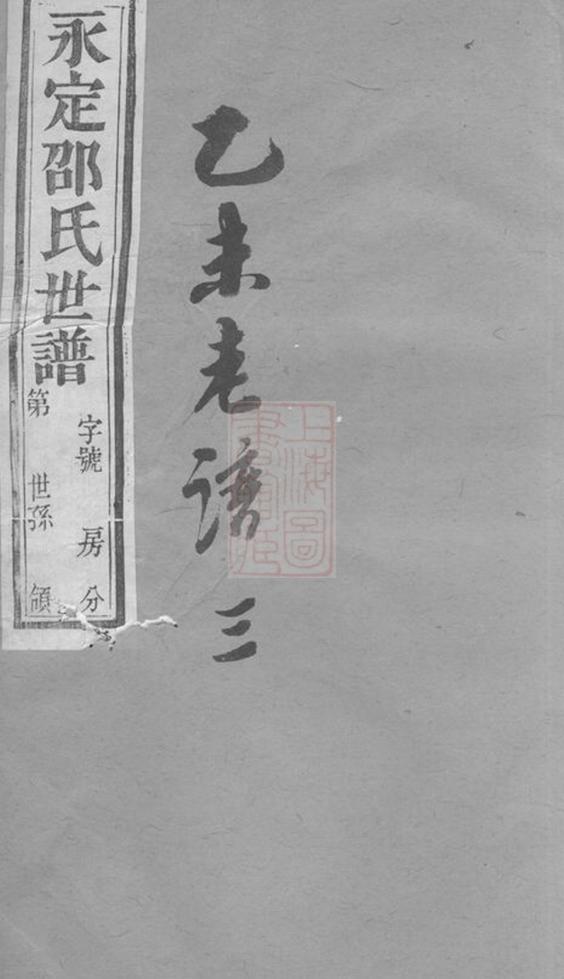 乙未老谱 三
永定邵氏世譜
字號 房分
第 世孫 領
上海圖
書館藏